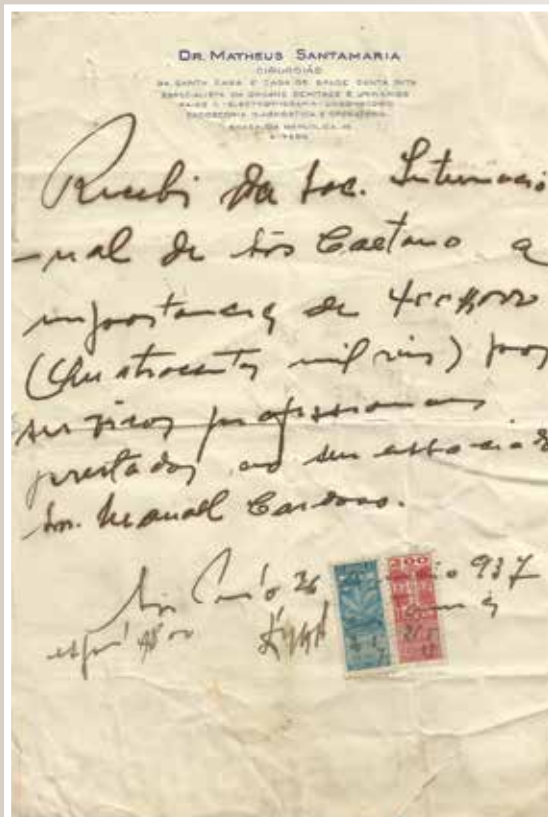 DR. MATHEUS SANTAMARIA
CIRURGIÃO
DA SANTA CASA E CASA DE SAUDE SANTA RITA
ESPECIALISTA EM ORGANS GENITAES E URINARIOS
RAIOS X - ELECTROTHERAPIA - LABORATORIO
ENDOSCOPIA DIAGNOSTICA E OPERATORIA
PRAÇA DA REPUBLICA
Recebi da Soc. Internacio
-nal de São Caetano a
importancia de 400$000
(Quatrocentos mil reis) por
serviços profissionaes
prestados ao seu associado
Snr. Manoel Cardoso.
São Paulo 26 937
200